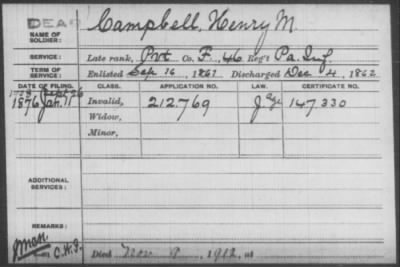 DEAD
NAME OF SOLDIER: Campbell, Henry M.
SERVICE: Late rank, Pvt Co. F, 46 Reg't Pa. Inf.
TERM OF SERVICE: Enlisted Sep 16, 1861 Discharged Dec 4, 1862
DATE OF FILING. CLASS. APPLICATION NO. LAW. CERTIFICATE NO.
1876 Jan. 11 Invalid, 212.769 147 330
Widow,
Minor,
ADDITIONAL SERVICES:
REMARKS:
C.W.F. Died Nov 9, 1912, at